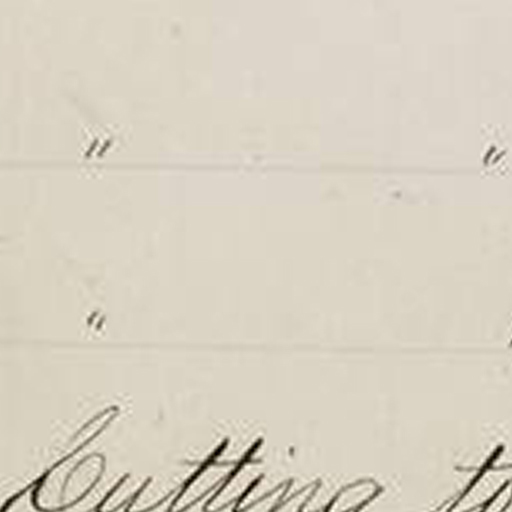 " "
"
Cutting